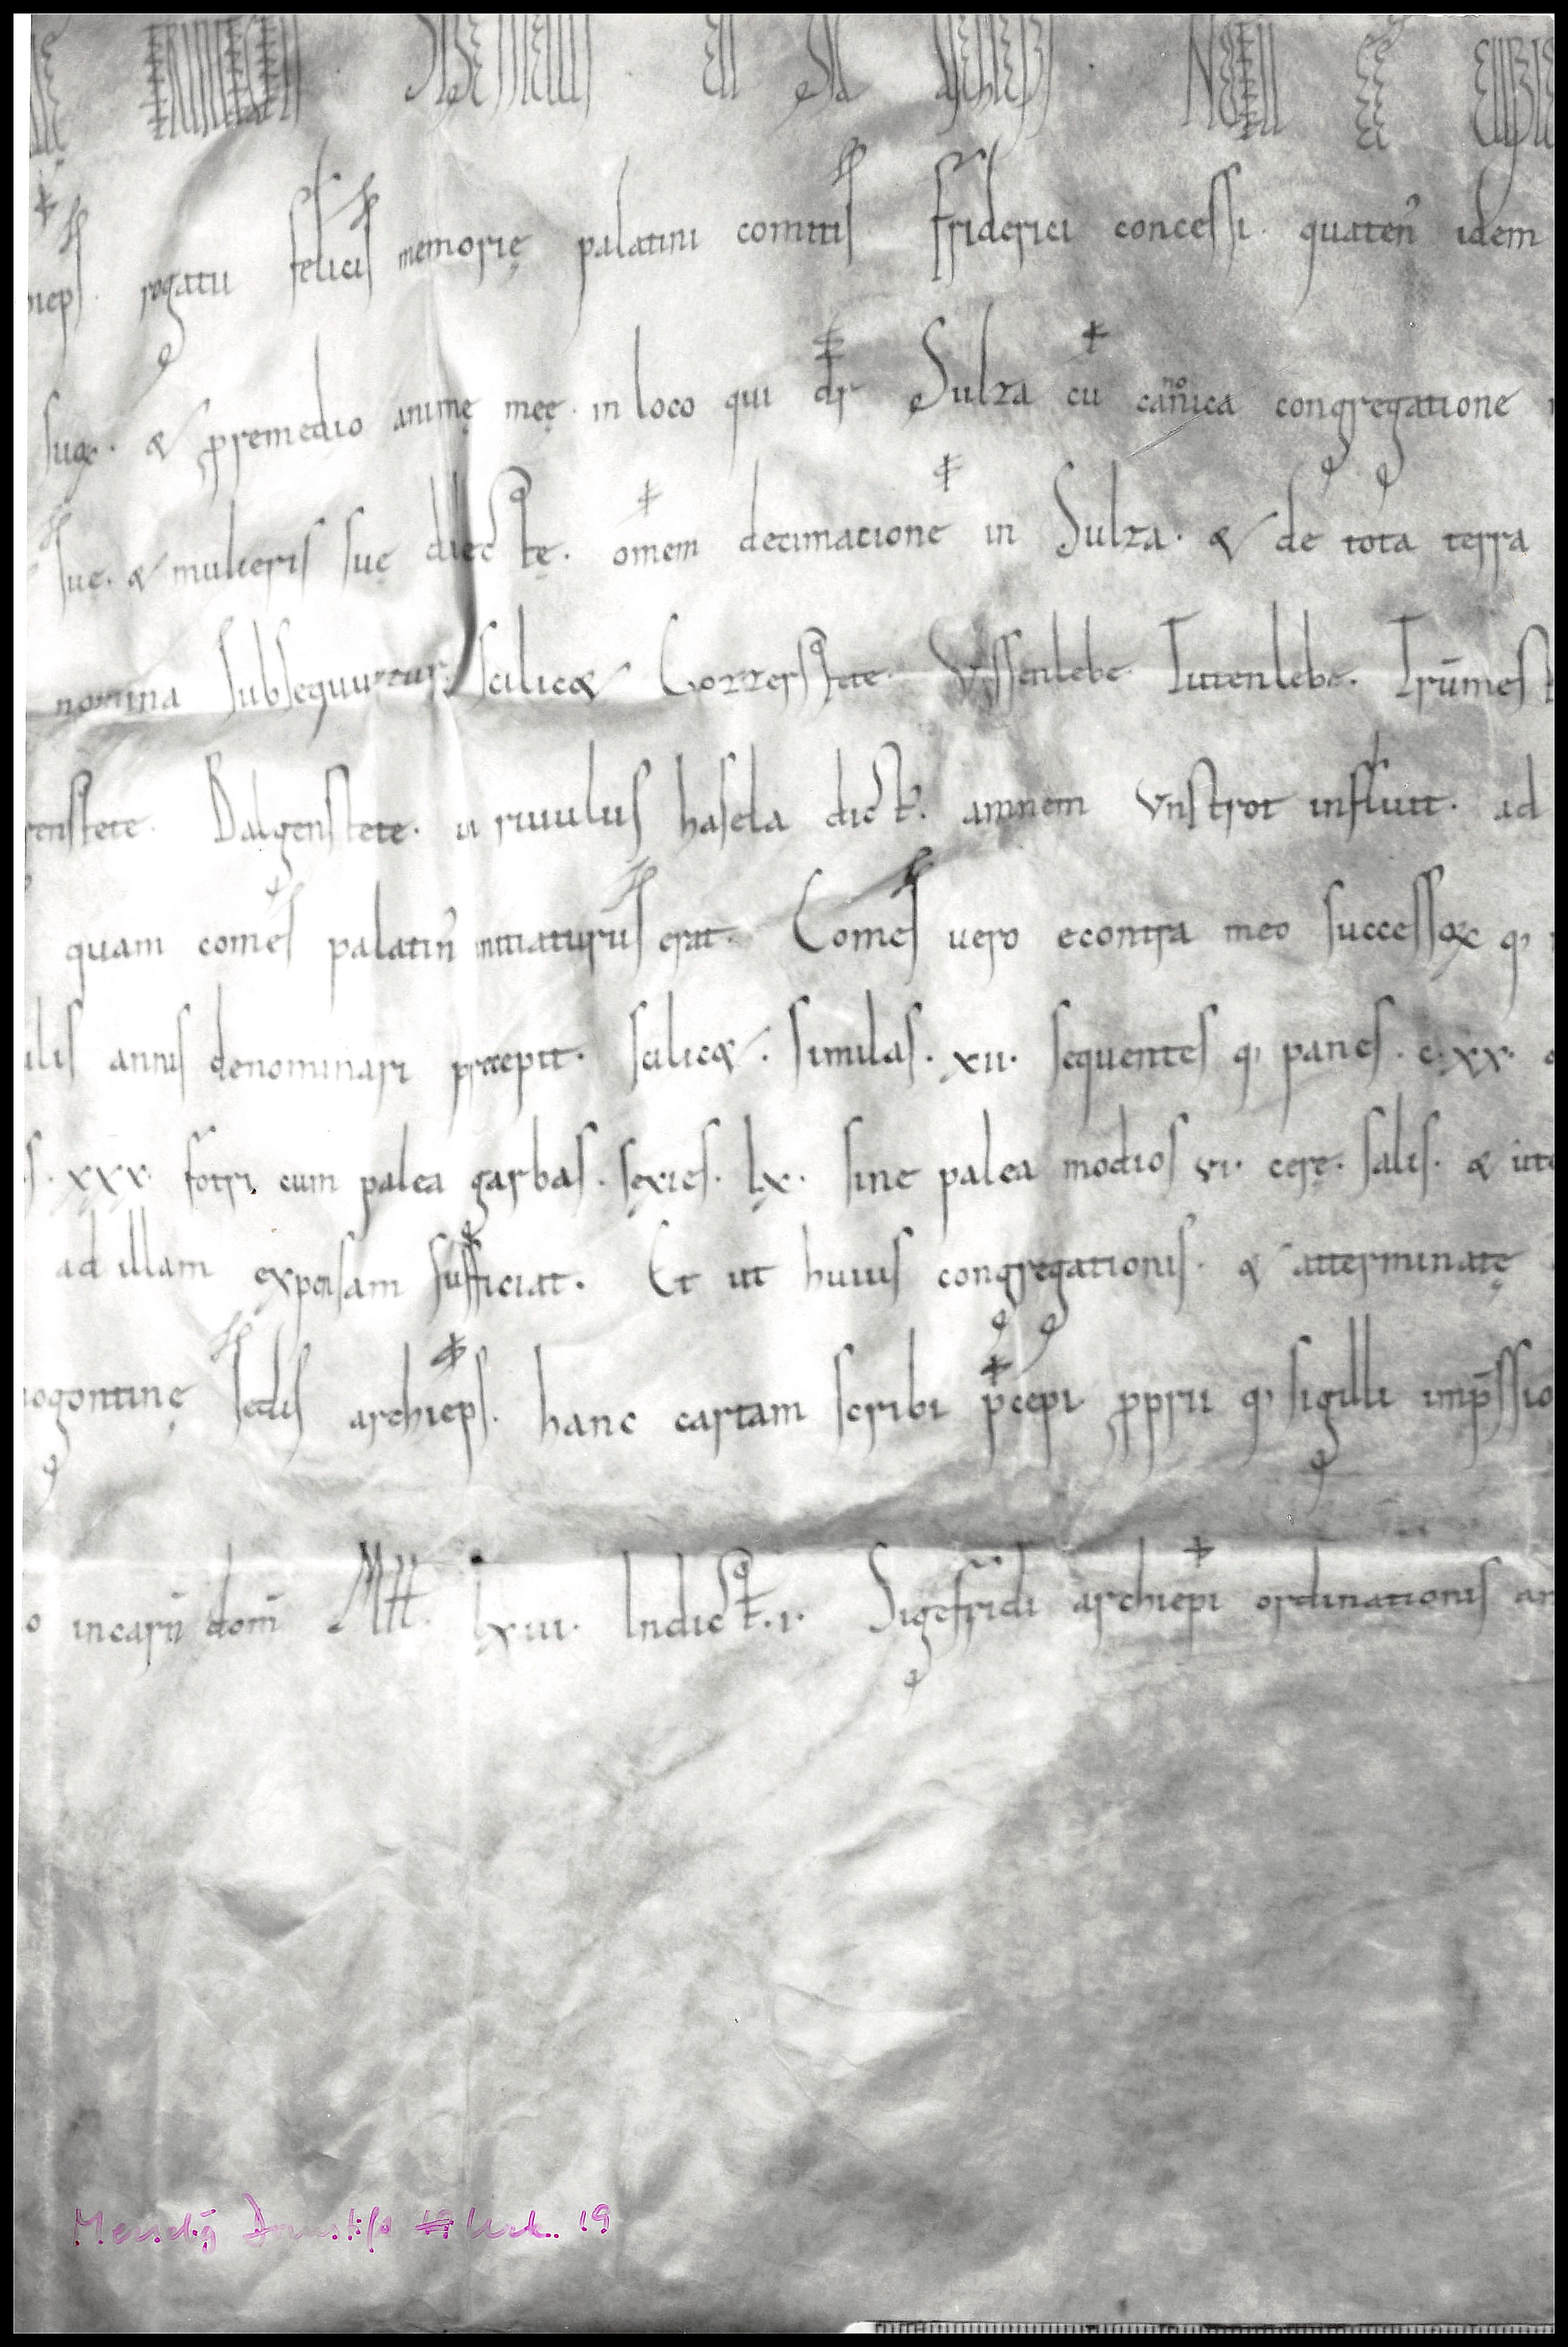 hieps. rogatu felicis memorię palatini comitis friderici concessi. quaten9 idem
suae. & p remedio animę meę. in loco qui dr Sulza cū canonica congregatione
suę. & mulieris suę dictę. omem decimacionē in Sulza. & de tota terra
nomina subsequuntur. scilic& Gozzerstete. Vssenlebe. Tutenlebe. Trūmes
renstete. Dalgenstete. ut riuulus hasela dict9. amnem Vnstrot influit. ad
quam comes palatin9 initiaturus erit. Comes uero econtra meo successori q;
ulis annis denominari praecepit. scilic&. similas. xii. sequentes q; panes. c. xx.
s. xxx. fotri cum palea garbas. sexies. lx. sine palea modios vi. cerę. salis. & ut
ad illam expensam sufficiat. Et ut huius congregationis. & atterminatę
mogontinę sedis archieps. hanc cartam scribi pcepi pprii q; sigilli impssio
o incarn dom Mill. lxiii. Indict. i. Sigefridi archiepi ordinationis an
Urk. 19